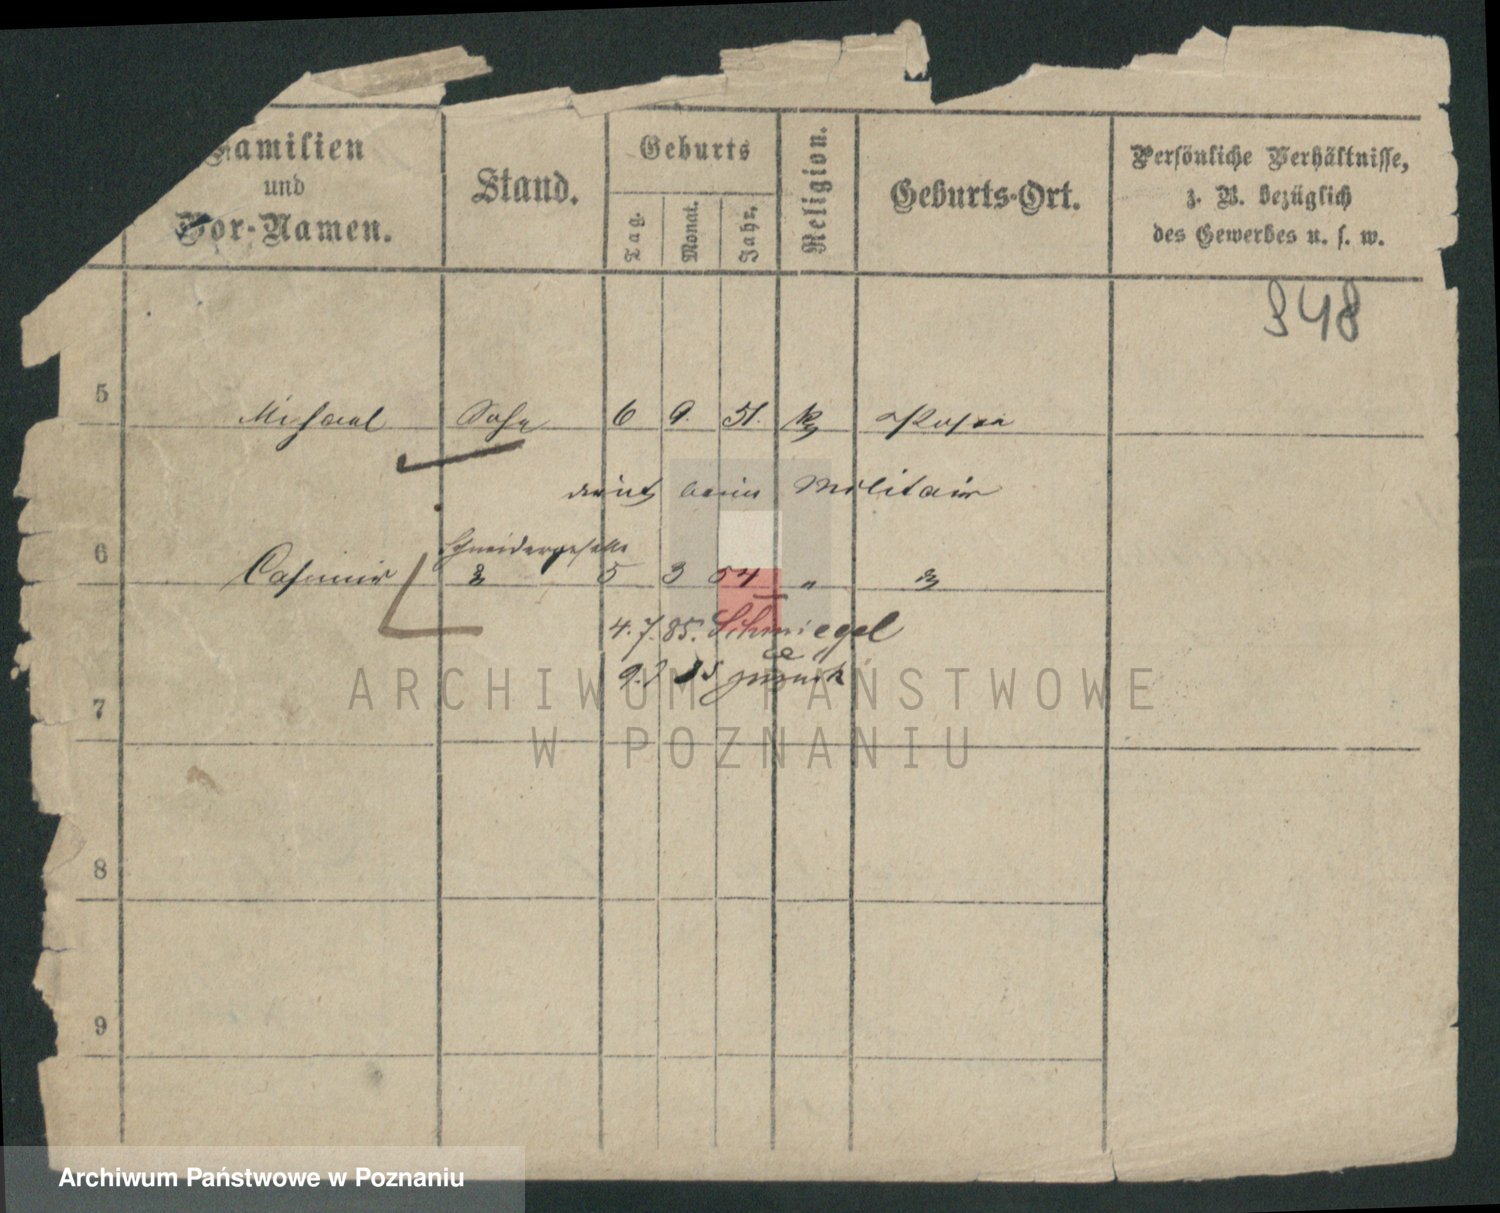 Familien
und
Vor-Namen.
Stand.
Geburts
Tag.
Monat.
Jahr.
Religion.
Geburts-Ort.
Persönliche Verhältnisse,
z. B. bezüglich
des Gewerbes u. s. w.
348
5 Michael Sohn 6 9. 51. k Posen
dient beim Militair
Schneidergeselle
6 Casimir 5 3 54 "
4. 7. 85. Schmiegel
85 zurück
7
8
9
ARCHIWUM PAŃSTWOWE
W POZNANIU
Archiwum Państwowe w Poznaniu